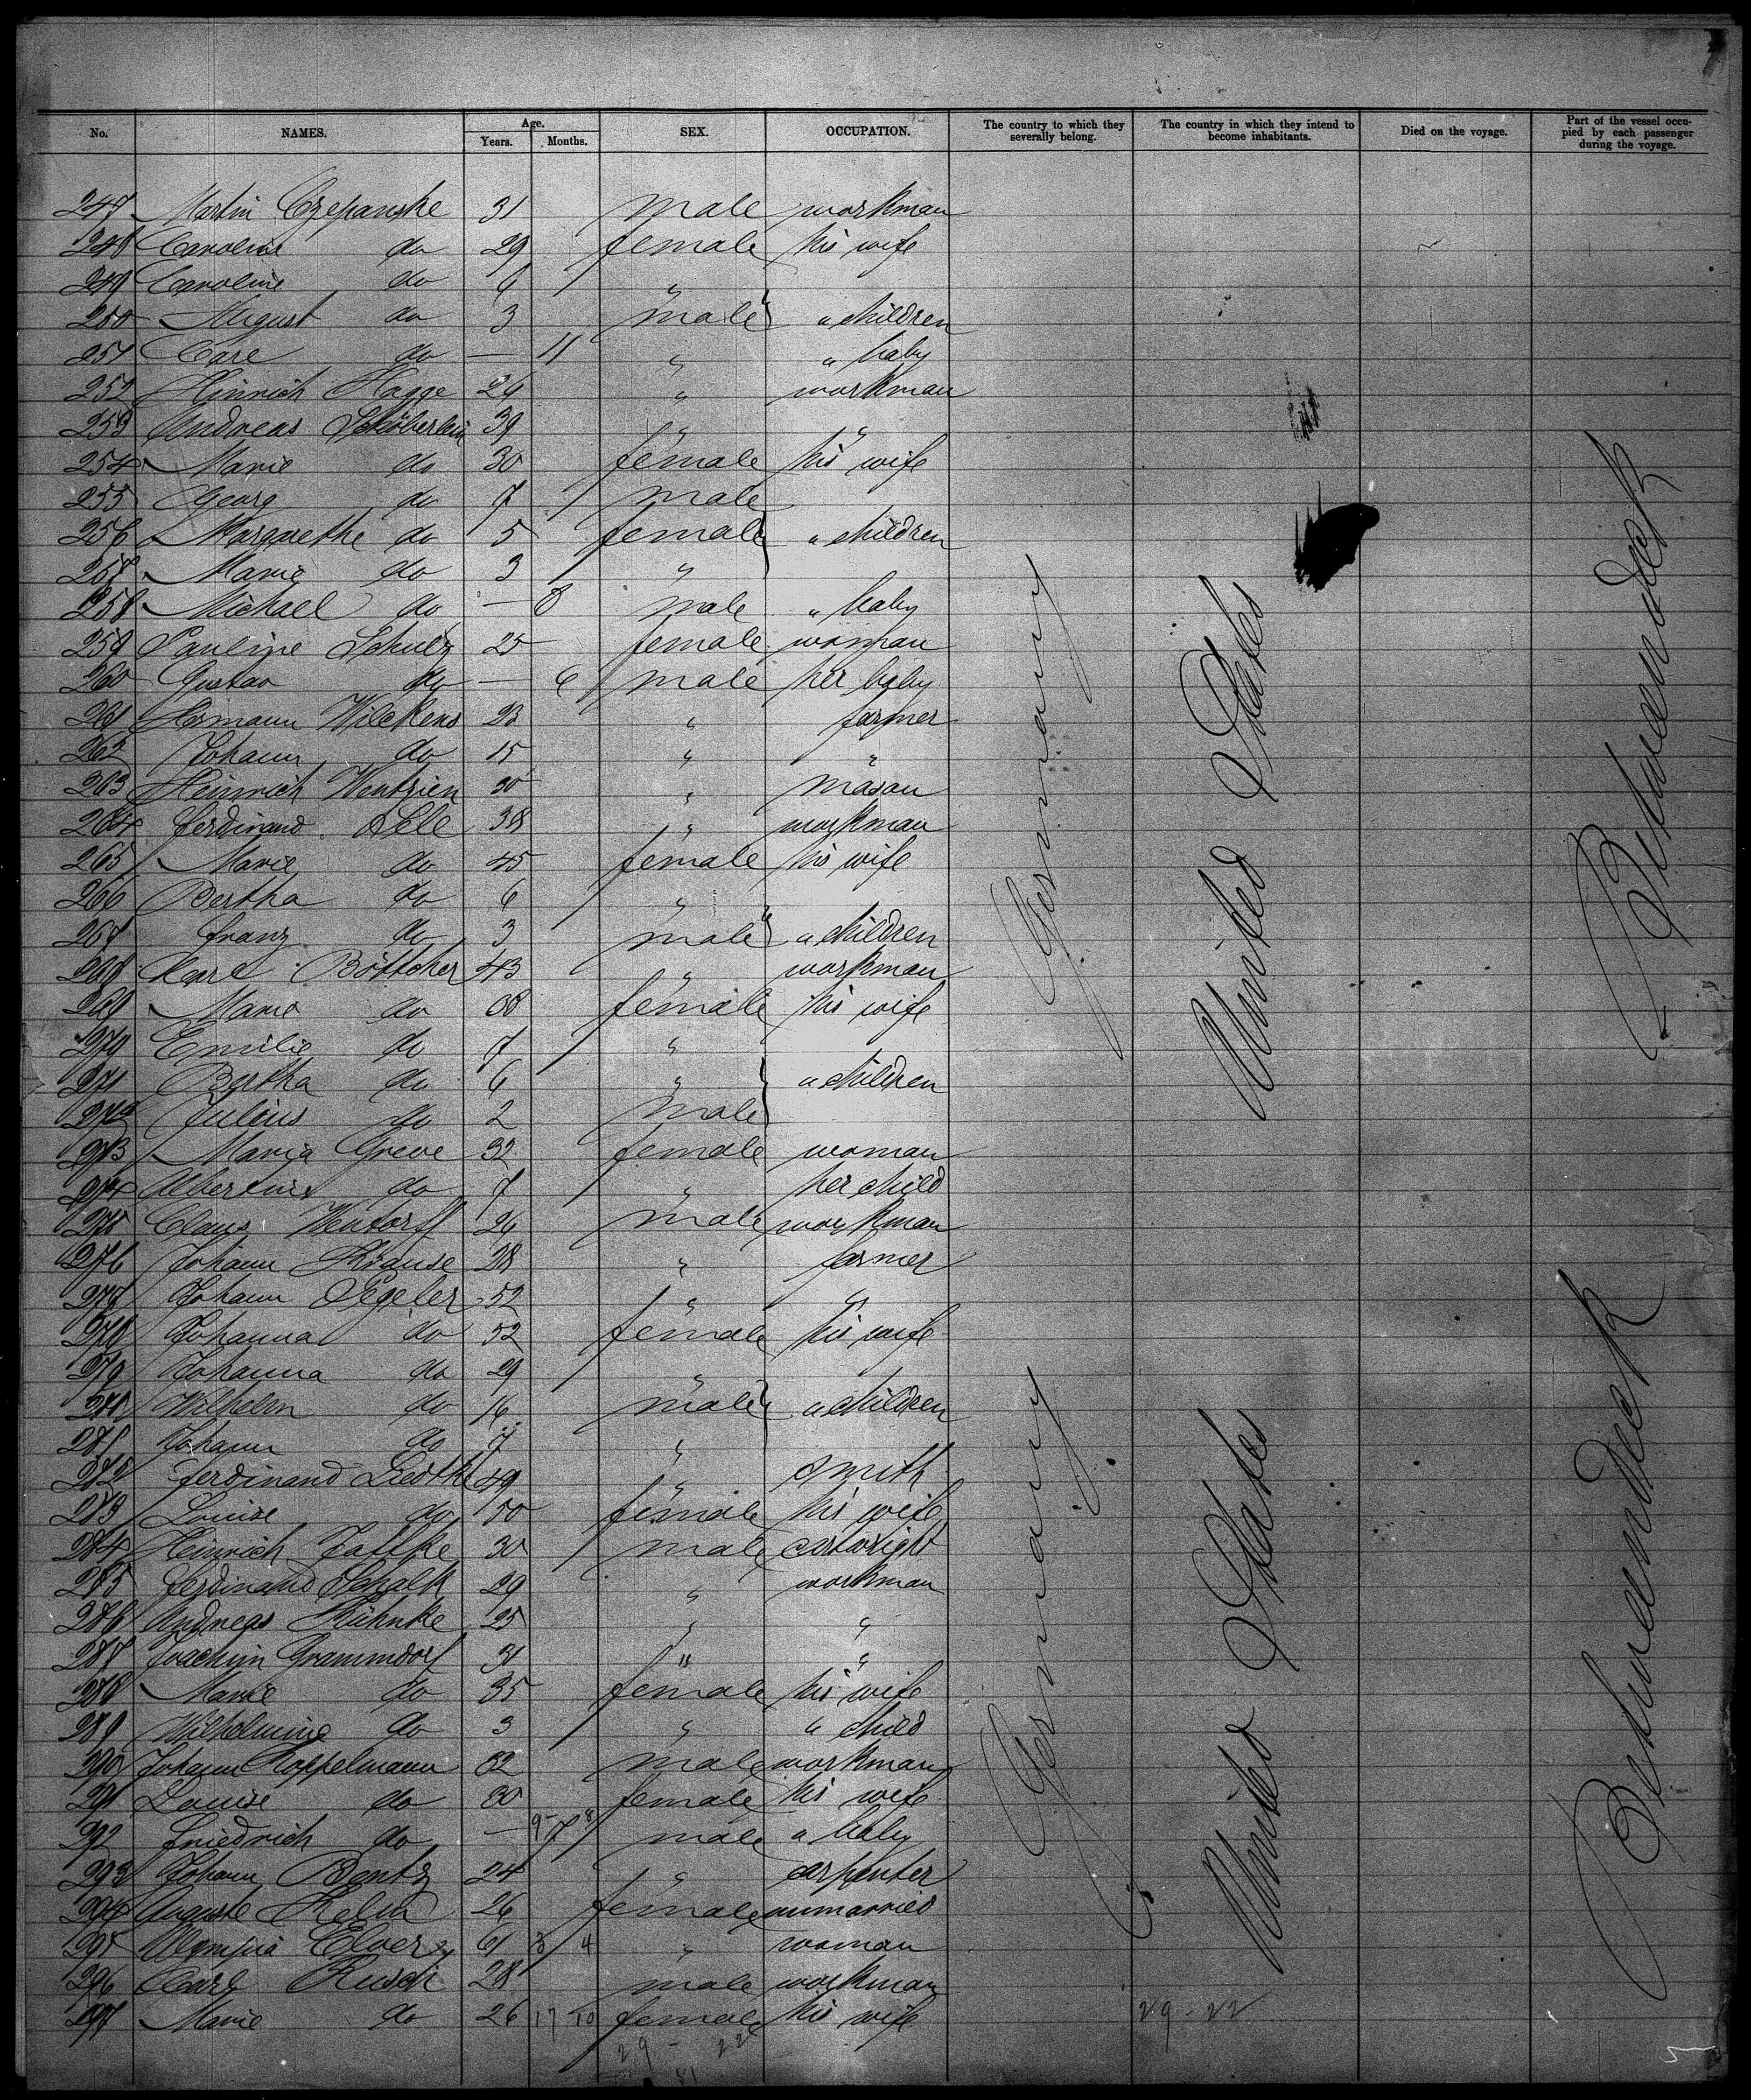 No. NAMES. Age. Years. Months. SEX. OCCUPATION. The country to which they severally belong. The country in which they intend to become inhabitants. Died on the voyage. Part of the vessel occupied by each passenger during the voyage.
247 Martin Czepanske 31 male workman
248 Caroline do 29 female his wife
249 Caroline do 6 "
250 August do 3 male " children
251 Carl do — 11 " " baby
252 Hinrich Hagge 29 " workman
253 Andreas Schöberlein 39 " "
254 Marie do 30 female his wife
255 Georg do 7 male
256 Margarethe do 5 female " children
257 Marie do 3 "
258 Michael do — 8 male " baby
259 Pauline Schulz 25 female woman
260 Gustav do — 6 male her baby
261 Hermann Wilckens 23 " farmer
262 Johann do 15 " "
263 Heinrich Wentzien 30 " mason
264 Ferdinand 38 " workman
265 Marie do 45 female his wife
266 Bertha do 6 "
267 Franz do 3 male " children
268 Carl Böttcher 43 " workman
269 Marie do 38 female his wife
270 Emilie do 7 "
271 Bertha do 6 " " children
272 Julius do 2 male
273 Maria Greve 32 female woman
274 Albertine do 7 " her child
275 Claus Wentorff 26 male workman
276 Johann Krause 28 " farmer
277 Johann Segeler 52 " "
278 Johanna do 52 female his wife
279 Johanna do 29 "
280 Wilhelm do 16 male " children
281 Johann do 7 "
282 Ferdinand Liedtke 49 " smith
283 Louise do 50 female his wife
284 Heinrich Taffke 30 male cartwright
285 Ferdinand Schalk 29 " workman
286 Andreas Kühnke 25 " "
287 Joachim Grammdorf 31 " "
288 Marie do 35 female his wife
289 Wilhelmine do 3 " " child
290 Johann Koppelmann 32 male workman
291 Louise do 30 female his wife
292 Friedrich do — 7 male " baby
9 - 8
293 Johann Bentz 24 " carpenter
294 Auguste Rehn 26 female unmarried
295 Olympia Elvers 61 " woman
3 / 4
296 Carl Rusch 28 male workman
297 Marie do 26 female his wife
17 10
29 - 22
29 - 22
81
Germany
United States
Betweendeck
Germany
United States
Betweendeck